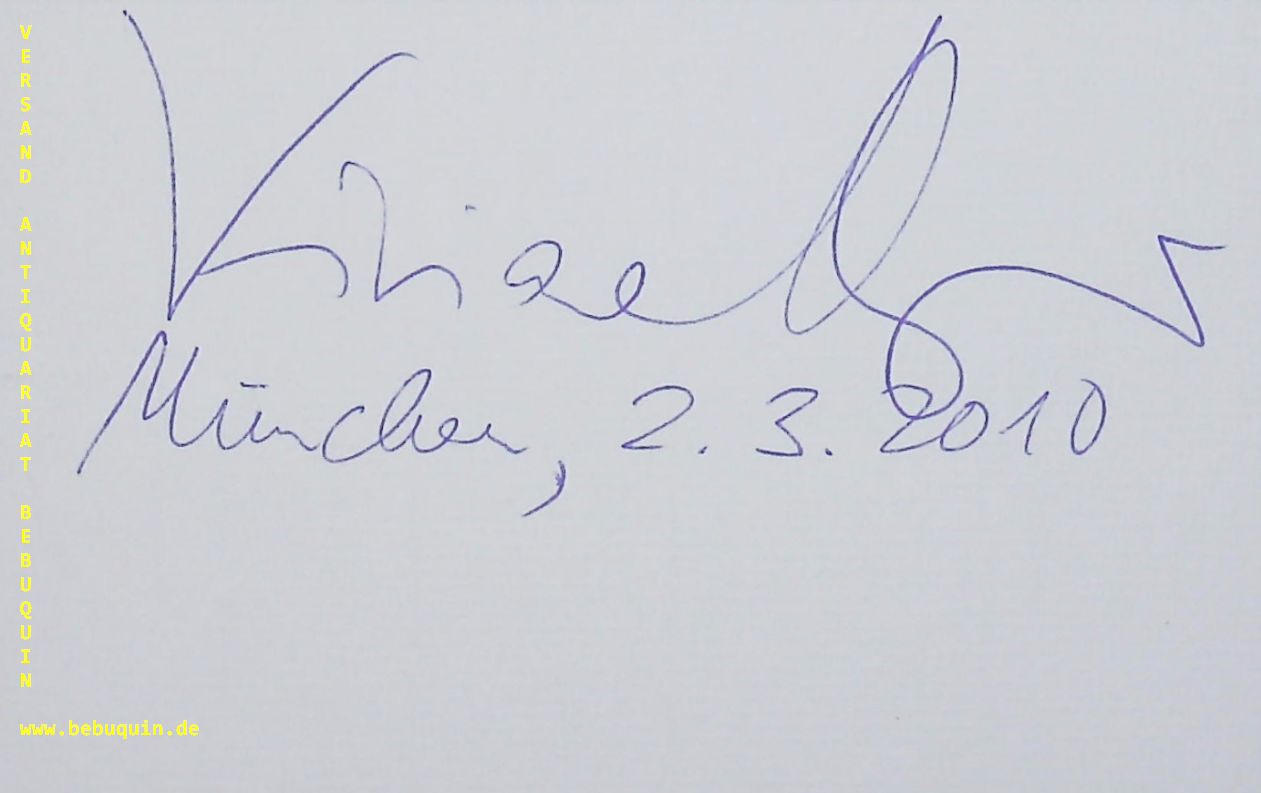 München, 2. 3. 2010
VERSAND ANTIQUARIAT BEBUQUIN
www.bebuquin.de